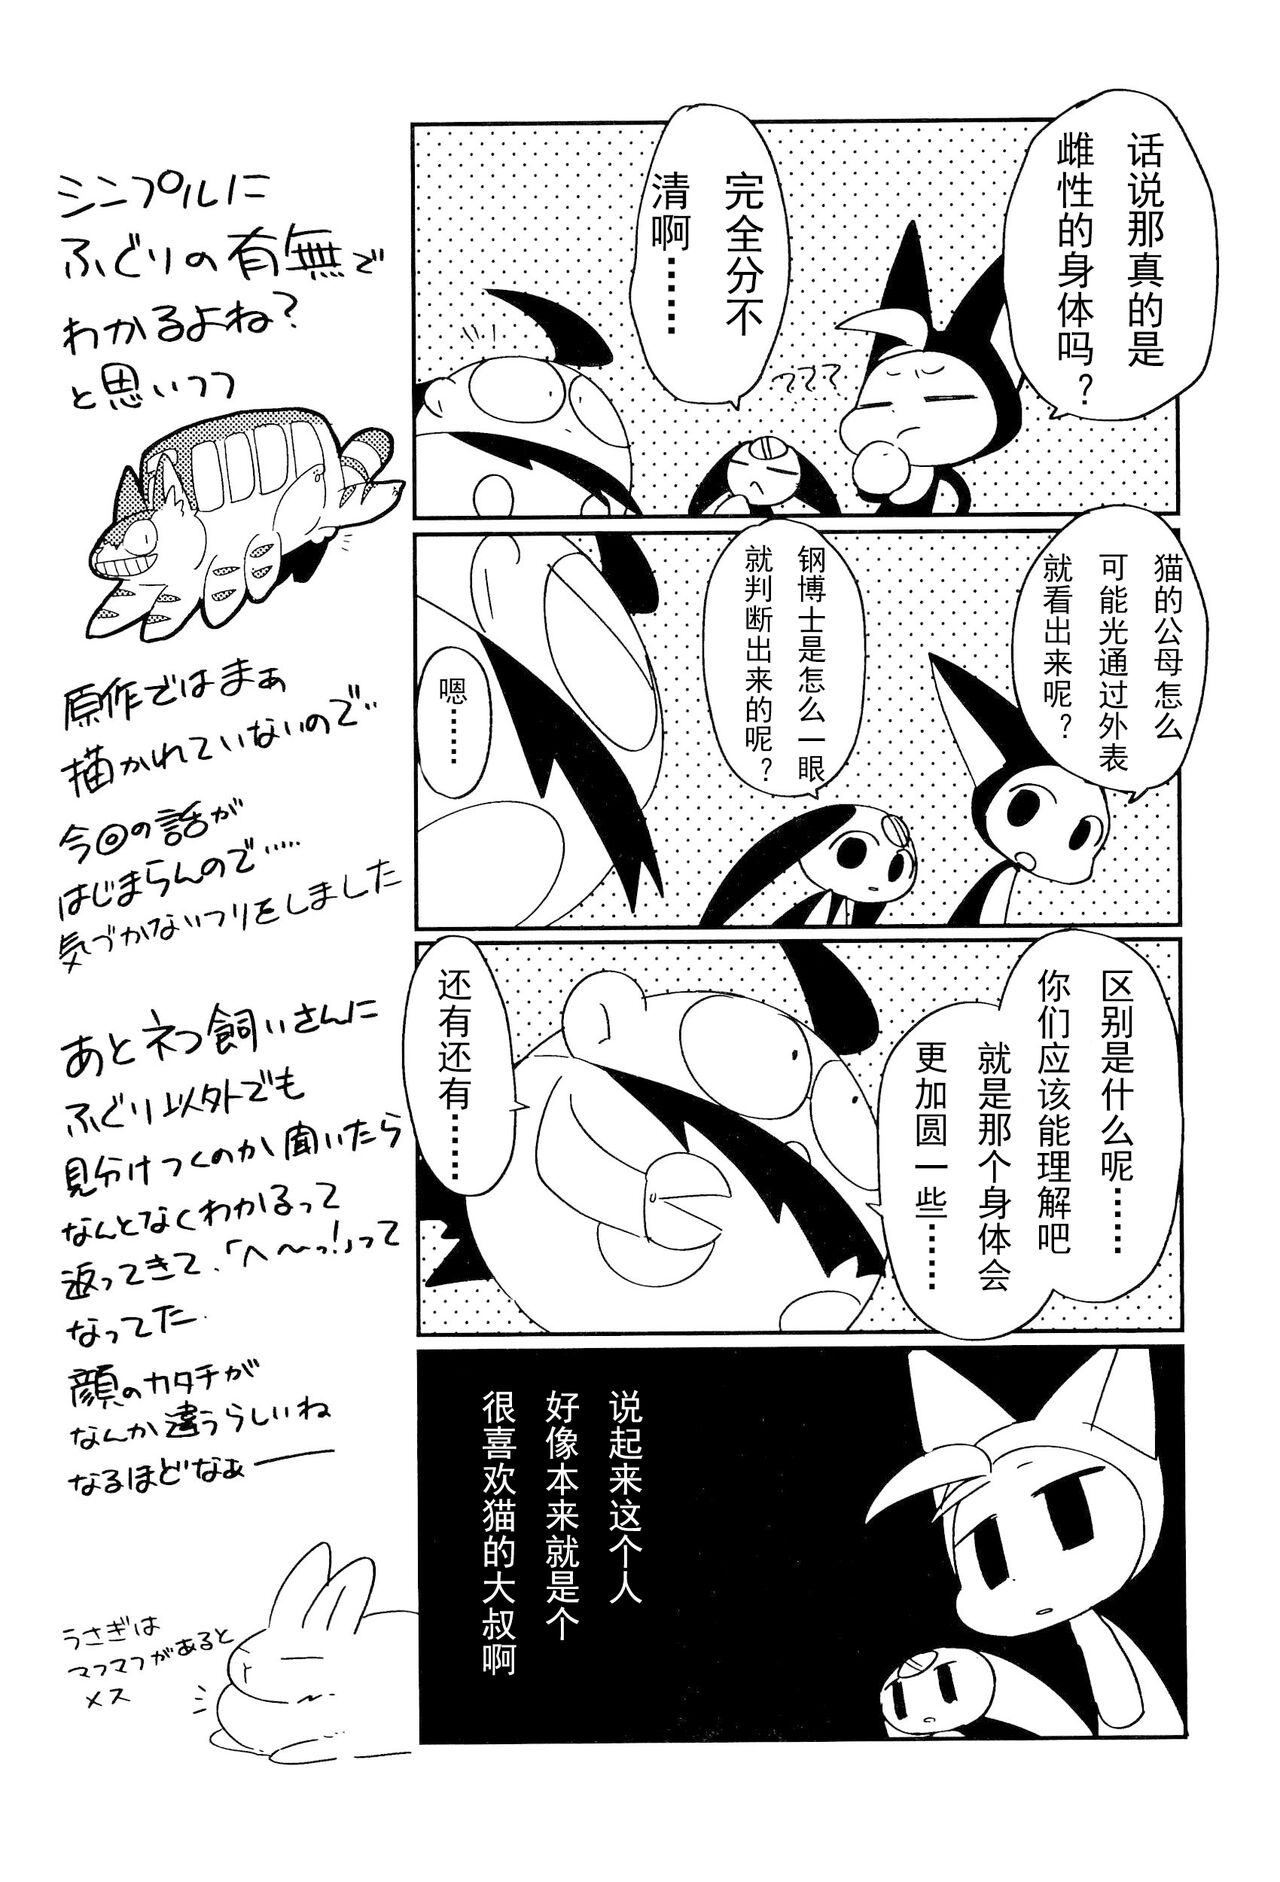 话说那真的是
雌性的身体吗？
完全分不
清啊……
？？？
猫的公母怎么
可能光通过外表
就看出来呢？
钢博士是怎么一眼
就判断出来的呢？
嗯……
区别是什么呢……
你们应该能理解吧
就是那个身体会
更加圆一些……
还有还有……
说起来这个人
好像本来就是个
很喜欢猫的大叔啊
シンプルに
ふぐりの有無で
わかるよね？
と思いつつ
原作ではまぁ
描かれていないので
今回の話が
はじまらんので……
気づかないフリをしました
あとネコ飼いさんに
ふぐり以外でも
見分けつくのか聞いたら
なんとなくわかるって
返ってきて、「へ～っ！」って
なってた
顔のカタチが
なんか違うらしいね
なるほどなぁ――
うさぎは
マフマフがあると
メス